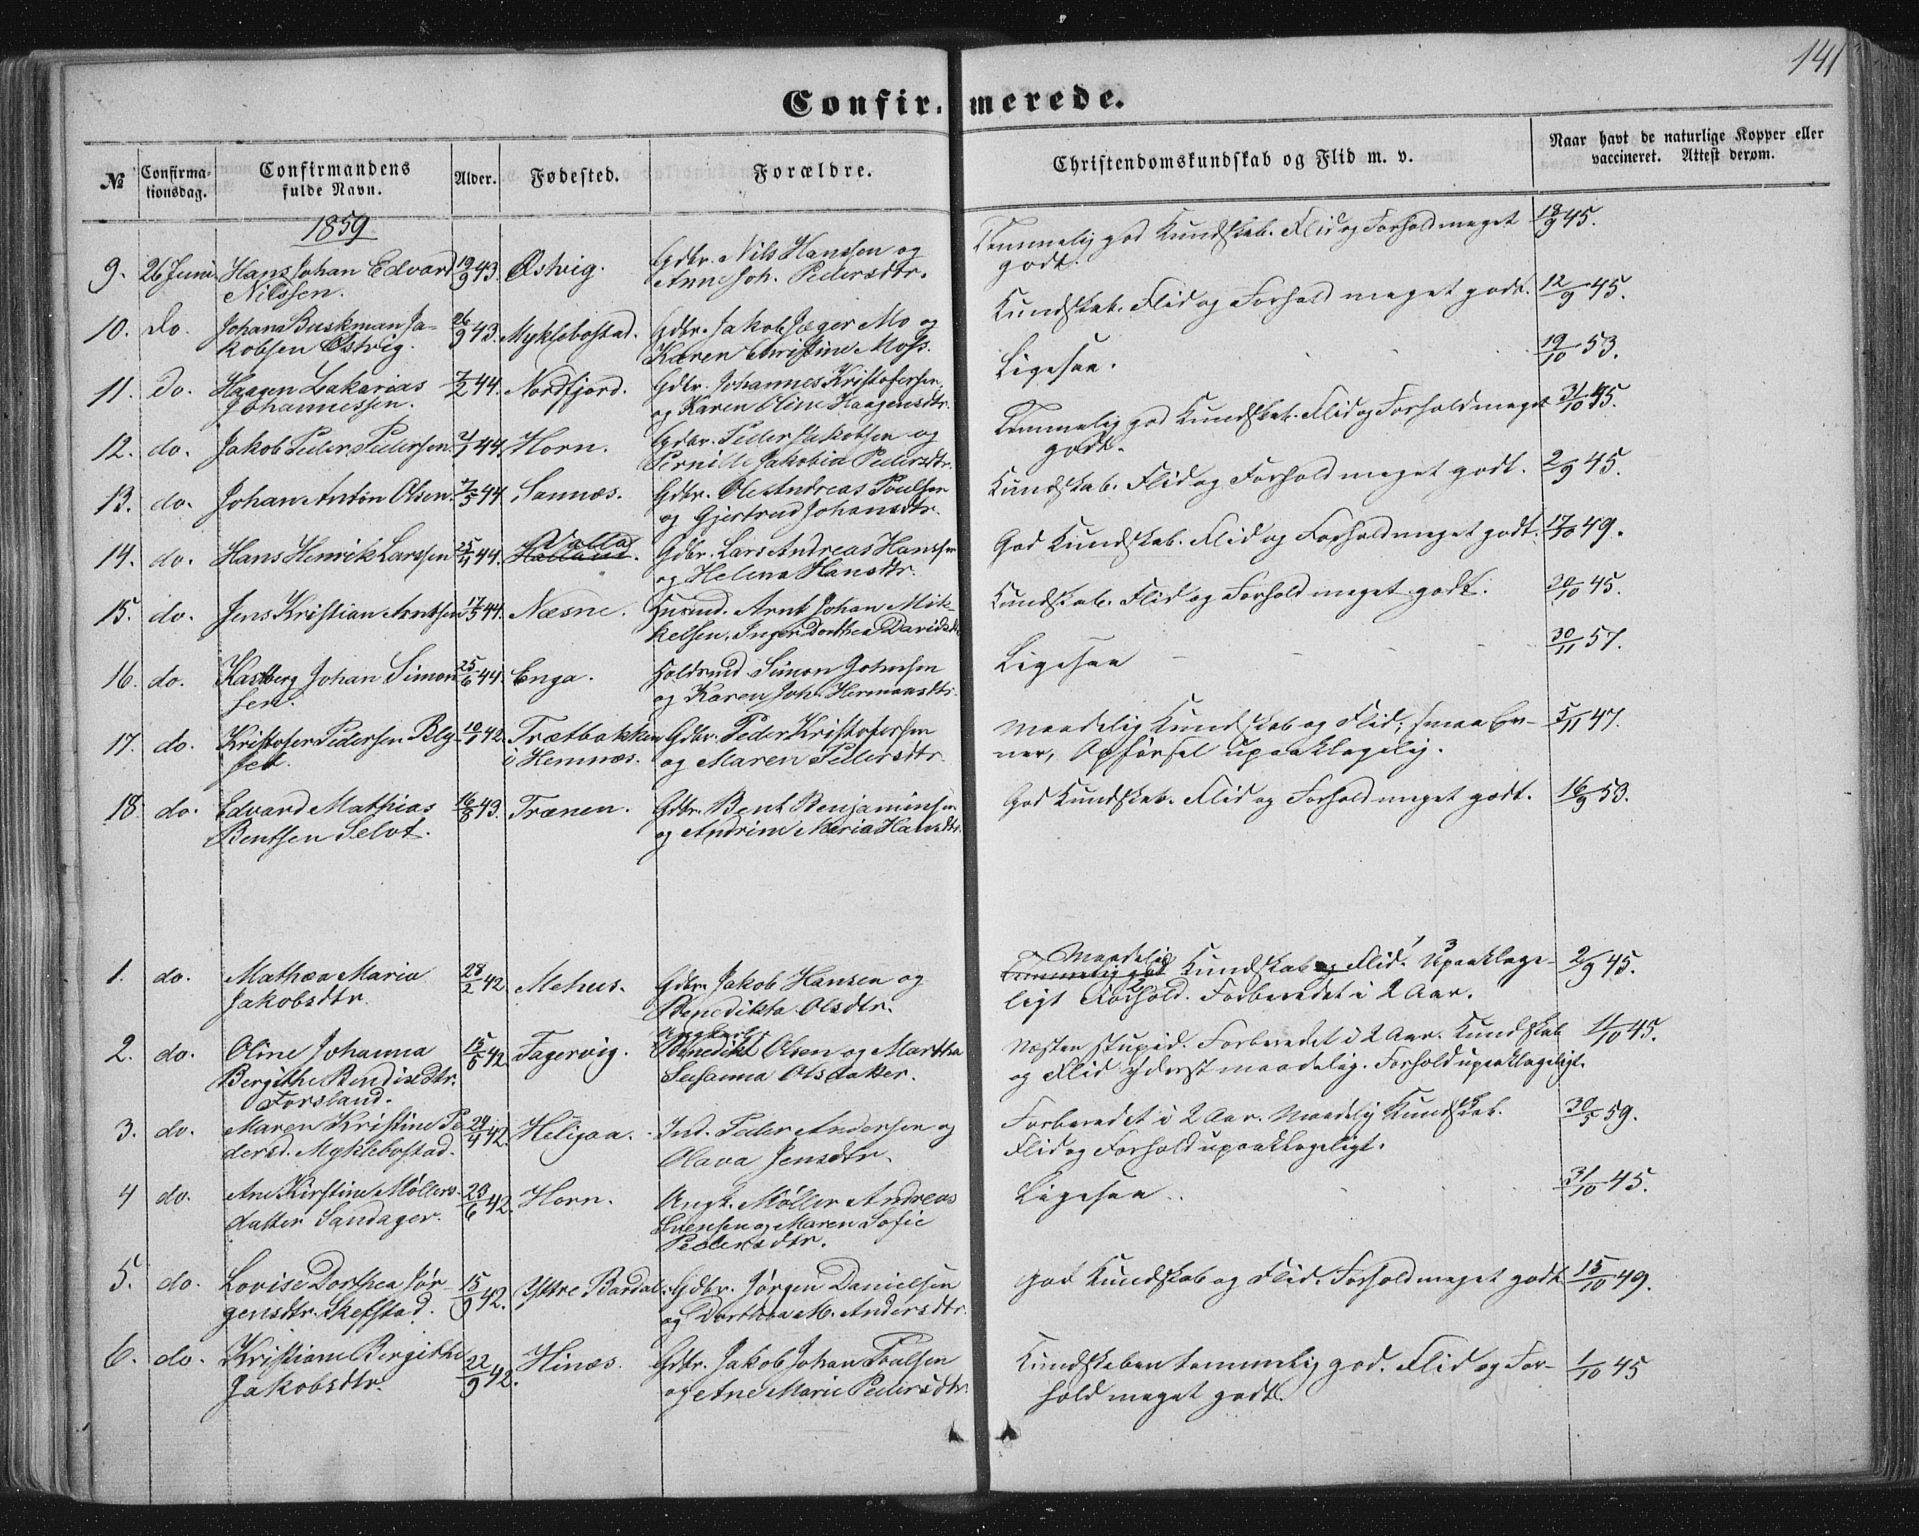 141
Confirmerede.
№ Confirmationsdag. Confirmandens fulde Navn. Alder. Fødested. Forældre. Christendomskundskab og Flid m. v. Naar havt de naturlige Kopper eller vaccineret. Attest derom.
1859
9. 26 Juni Hans Johan Edvard 19/9 43. Østvig. Gdbr. Nils Hanssen og Temmelig god Kundskab. Flid og Forhold meget 18/9 45.
Nilssen. Anne Joh. Pedersdtr. godt.
10. do. Johan Buskman Ja- 26/9 43. Myklebostad. Gdbr. Jakob Jæger Mo og Kundskab. Flid og Forhold meget godt. 12/9 45.
kobsen Østvig. Karen Christine Mo
11. do. Haagen Zakarias 7/2 44. Nordfjord. Gdbr. Johannes Kristofersen Ligesaa. 19/10 53.
Johannessen. og Karen Oline Haagensdtr.
12. do. Jakob Peder Pedersen 2/1 44. Horn. Gdbr. Peder Jakobsen og Temmelig god Kundskab. Flid og Forhold meget 31/10 45.
Pernille Jakobia Pedersdtr. godt.
13. do. Johan Antin Olsen. 7/5 44. Sannæs. Gdbr. Ole Andreas Poulsen Kundskab. Flid og Forhold meget godt. 2/9 45.
og Gjertrud Johansdtr.
14. do. Hans Henrik Larssen 25/4 44. Gdbr. Lars Andreas Hanssen God Kundskab. Flid og Forhold meget godt. 17/10 49.
og Helena Hansdtr.
15. do. Jens Kristian Arntsen 17/5 44. Næsne. Husmd. Arnt Johan Mik- Kundskab. Flid og Forhold meget godt. 20/10 45.
kelsen, Inger Dorthea Davidsdtr
16. do. Kastberg Johan Simon 25/6 44. Enga. Simon Johnsen Ligesaa 30/11 57.
sen. og Karen Joh. Hermansdtr.
17. do. Kristofer Pedersen Bly- 10/1 42. Trætbakken Gdbr. Peder Kristofersen Maadelig Kundskab og Flid; smaa Ev- 5/11 47.
set. i Hemnæs. og Maren Pedersdtr. ner, Opførsel upaaklagelig.
18. do. Edvard Mathias 16/8 43. Trænen. Gdbr. Bent Benjaminsen God Kundskab. Flid og Forhold meget godt. 16/9 53.
Bentsen Selvt. og Andrine Maria Hansdtr.
1. do. Mathæa Maria 28/2 42. Mehus. Gdbr. Jakob Hansen og Maadelig Kundskab og Flid. Upaaklage- 2/9 45.
Jakobsdtr. Benedikta Olsdtr. ligt Forhold. Forberedet i 2 Aar.
2. do. Oline Johanna 15/5 42. Fagervig. Benedikt Olsen og Martha Næsten stupid. Forberedet i 2 Aar. Kundskab 11/10 45.
Bergithe Bendiksdtr. Susanna Olsdatter. og Flid yderst maadelig. Forhold upaaklageligt.
Forsland.
3. do. Maren Kristine Pe 24/4 42. Heligaa. Ind. Peder Andersen og Forberedet i 2 Aar. Maadelig Kundskab. 30/5 59.
dersd. Myklebostad. Olava Jensdtr. Flid og Forhold upaaklageligt.
4 do. Ane Kirstine Møllers- 23/6 42. Horn. Ungk. Møller Andreas Ligesaa 31/10 45.
datter Sandager. Svensen og Maren Sofie
Pedersdtr.
5. do. Lovise Dorthea Jør- 15/9 42. Ystre Bardal. Gdbr. Jørgen Danielsen God Kundskab og Flid. Forhold meget godt 15/10 49.
gensdtr. Skefstad. og Dorthea M. Andersdtr.
6. do. Kristiane Bergithe 22/9 42. Hinæs. Gdbr. Jakob Johan Poulsen Kundskaben temmelig god. Flid og For- 1/10 45
Jakobsdtr. og Ane Marie Pedersdtr. hold meget godt.